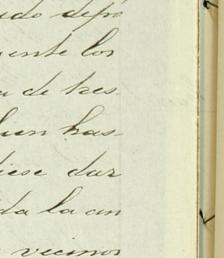 ido depo
mente los
a de tres
bien has-
diese dar
da la con
vecinos